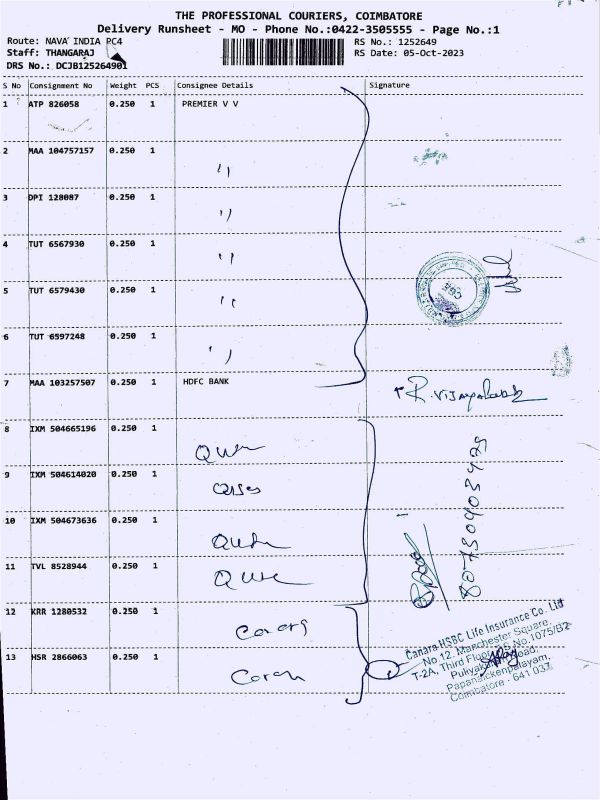 THE PROFESSIONAL COURIERS, COIMBATORE
Delivery Runsheet - MO - Phone No.:0422-3505555 - Page No.:1
Route: NAVA INDIA PC4
RS No.: 1252649
Staff: THANGARAJ
RS Date: 05-Oct-2023
DRS No.: DCJB125264901
S No Consignment No Weight PCS Consignee Details Signature
1 ATP 826058 0.250 1 PREMIER V V
2 MAA 104757157 0.250 1 ''
3 DPI 128087 0.250 1 ''
4 TUT 6567930 0.250 1 ''
5 TUT 6579430 0.250 1 ''
6 TUT 6597248 0.250 1 ''
7 MAA 103257507 0.250 1 HDFC BANK
8 IXM 504665196 0.250 1
9 IXM 504614020 0.250 1
10 IXM 504673636 0.250 1
11 TVL 8528944 0.250 1
12 KRR 1280532 0.250 1
13 HSR 2866063 0.250 1
Canara HSBC Life Insurance Co. Ltd
No 12, Manchester Square,
T-2A, Third Floor, S.No.1075/B2
Puliyakulam Road,
Papanaickenpalayam,
Coimbatore - 641 037.